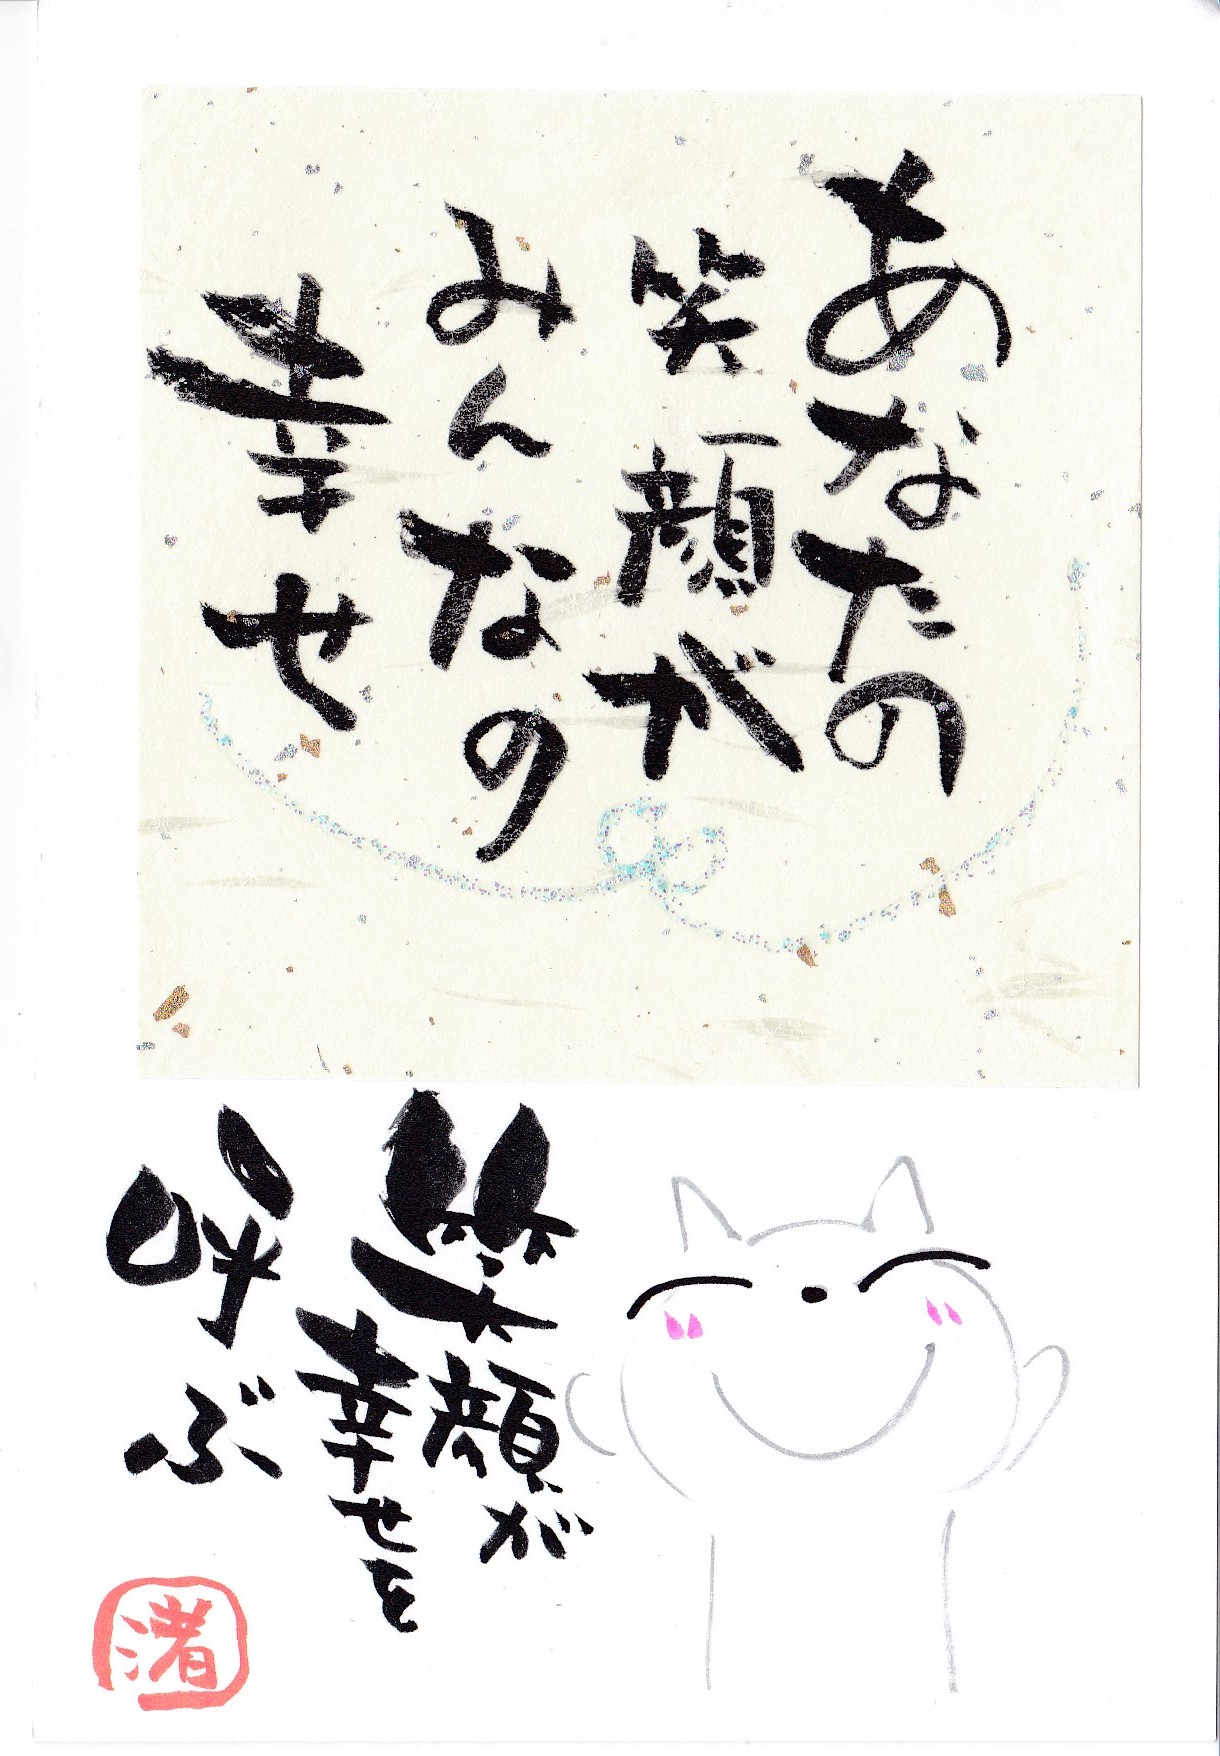 あなたの
笑顔が
みんなの
幸せ
笑顔が
幸せを
呼ぶ
渚